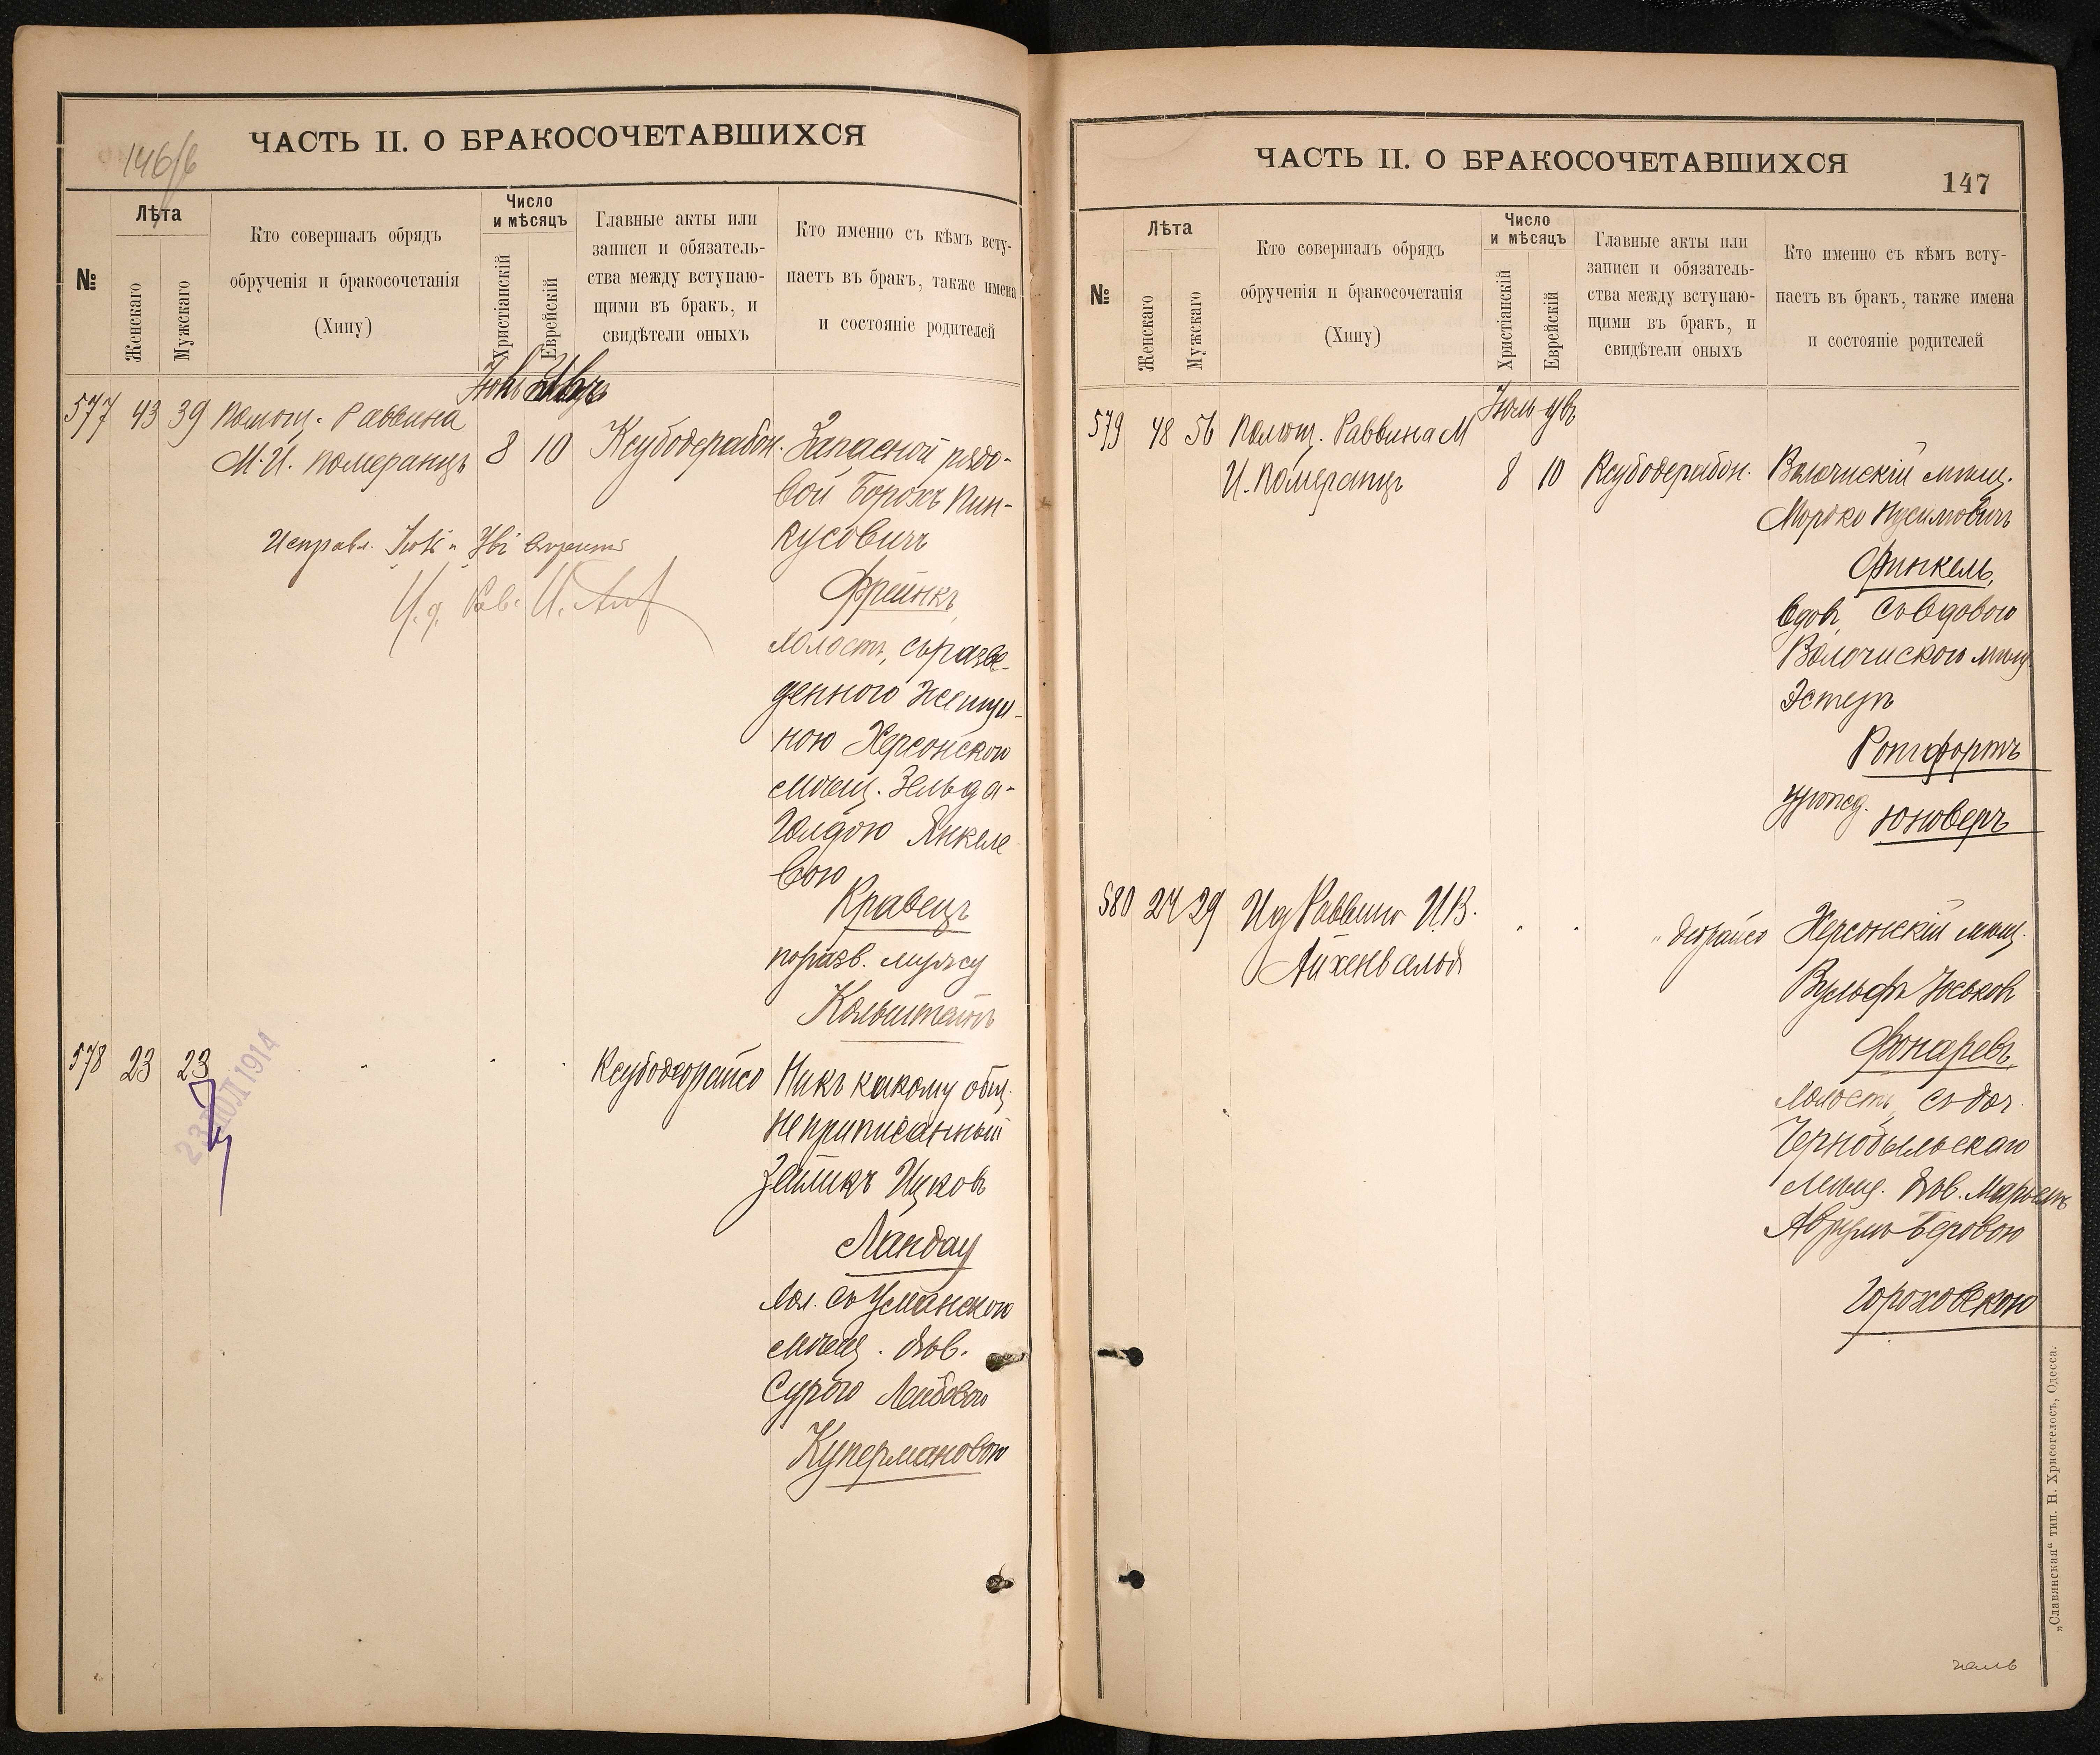 ЧАСТЬ II. О БРАКОСОЧЕТАВШИХСЯ
146/б
№
Лѣта
Женскаго
Мужскаго
Кто совершалъ обрядъ
обрученія и бракосочетанія
(Хипу)
Число
и мѣсяцъ
Христіанскій
Еврейскій
Главные акты или
записи и обязатель-
ства между вступаю-
щими въ бракъ, и
свидѣтели оныхъ
Кто именно съ кѣмъ всту-
паетъ въ бракъ, также имена
и состояніе родителей
577 43 39 Помощ. Раввина
М. И. Померанцъ 8 10 Ксубодерабон. Запасной рядо-
вой Борохъ Пин-
кусовичъ
Фрейнкъ,
холостъ, съ разве-
денного женщи-
ною Херсонскою
мѣщ. Зельда-
Голдою Янкеле
вою
Кравецъ
по разв. мужу
Кольштейнъ
Исправл.
И. д. Рав.
578 23 23 " " " Ксубодеорайсо Ни къ какому общ.
не приписанный
Зейликъ Ицковъ
Ландау
хол. съ Уманскою
мѣщ. дѣв.
Сурою Лейбовою
Купермановою
23 ІЮЛ 1914
ЧАСТЬ II. О БРАКОСОЧЕТАВШИХСЯ
147
№
Лѣта
Женскаго
Мужскаго
Кто совершалъ обрядъ
обрученія и бракосочетанія
(Хипу)
Число
и мѣсяцъ
Христіанскій
Еврейскій
Главные акты или
записи и обязатель-
ства между вступаю-
щими въ бракъ, и
свидѣтели оныхъ
Кто именно съ кѣмъ всту-
паетъ въ бракъ, также имена
и состояніе родителей
579 48 56 Помощ. Раввина М
И. Померанцъ 8 10 Ксубодерабон. Волочискій мѣщ.
Мордко Нусимовичъ
Финкель,
вдов, съ вдовою
Волочискою мѣщ
Эстеръ
Ротфортъ
урожд.
Юноверъ
580 24 29 Ид Раввина И.В.
Айхенвальд " " " деорайсо Херсонскій мѣщ.
Вульфъ Йоськов
Фонаревъ,
холостъ, съ доч.
Чернобыльскаго
мѣщ. дѣв. Марьемъ
Аврумъ-Беровою
Гороховскою
„Славянская“ тип. Н. Хрисогелосъ, Одесса.